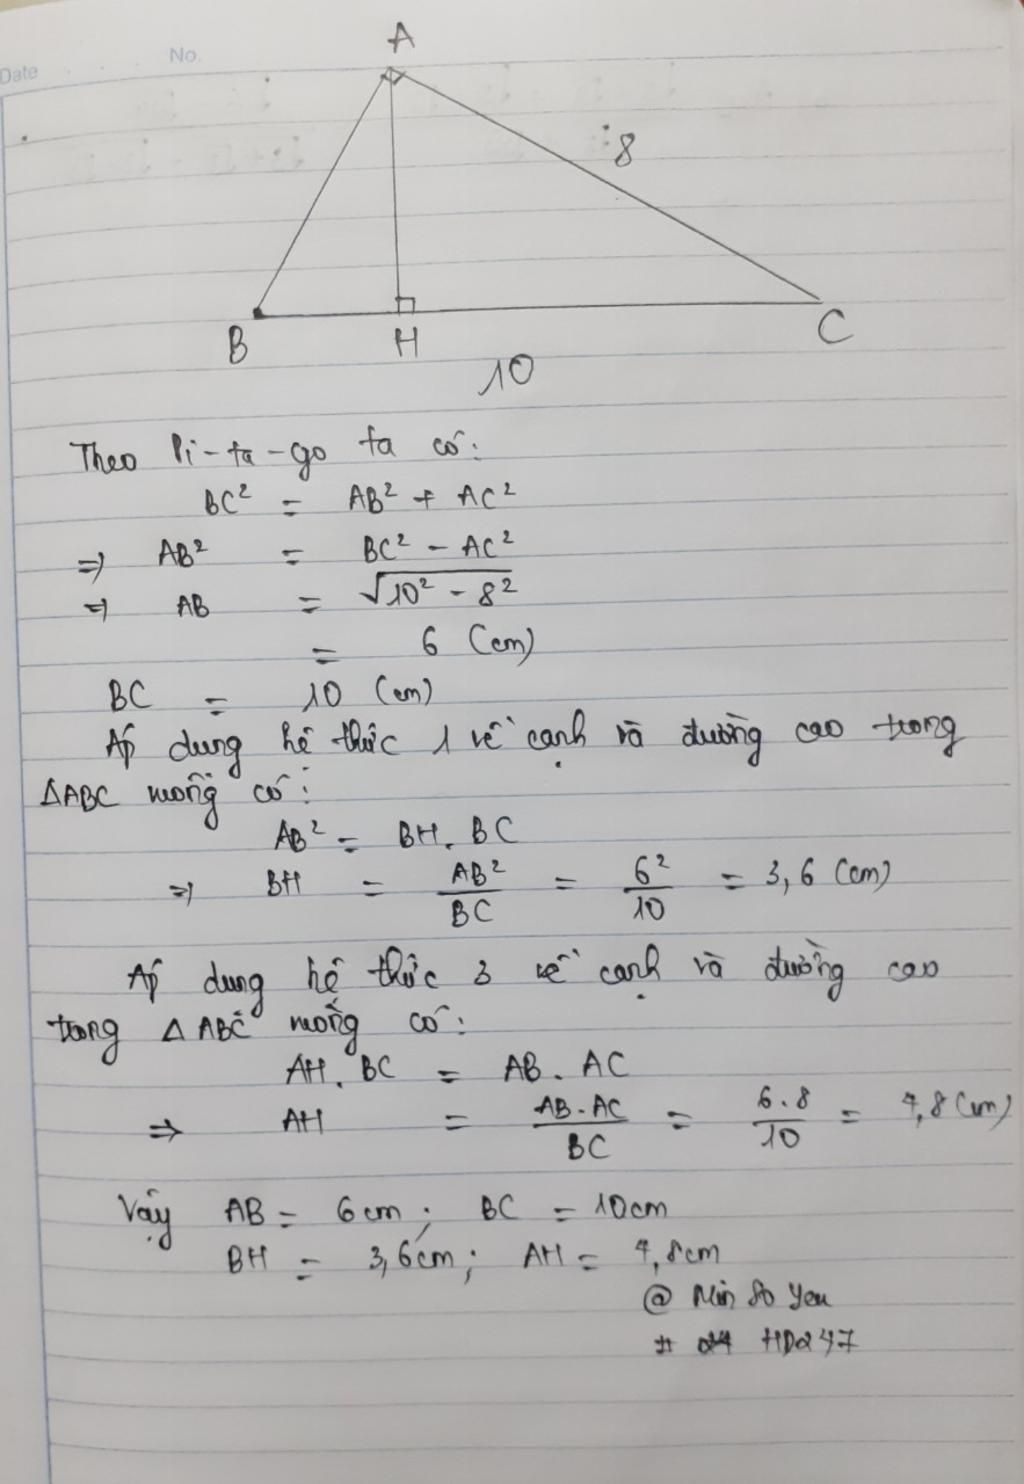 Date
No.
A
8
B
H
C
10
Theo Pi-ta-go ta có:
BC² = AB² + AC²
⇒ AB² = BC² - AC²
⇒ AB = √10² - 8²
= 6 (cm)
BC = 10 (cm)
Áp dụng hệ thức 1 về cạnh và đường cao trong
ΔABC vuông có:
AB² = BH. BC
⇒ BH = AB²/BC = 6²/10 = 3,6 (cm)
Áp dụng hệ thức 3 về cạnh và đường cao
trong Δ ABC vuông có:
AH. BC = AB. AC
⇒ AH = AB.AC/BC = 6.8/10 = 4,8 (cm)
Vậy AB = 6cm; BC = 10cm
BH = 3,6cm; AH = 4,8cm
@ Min So Yeu
# HD247